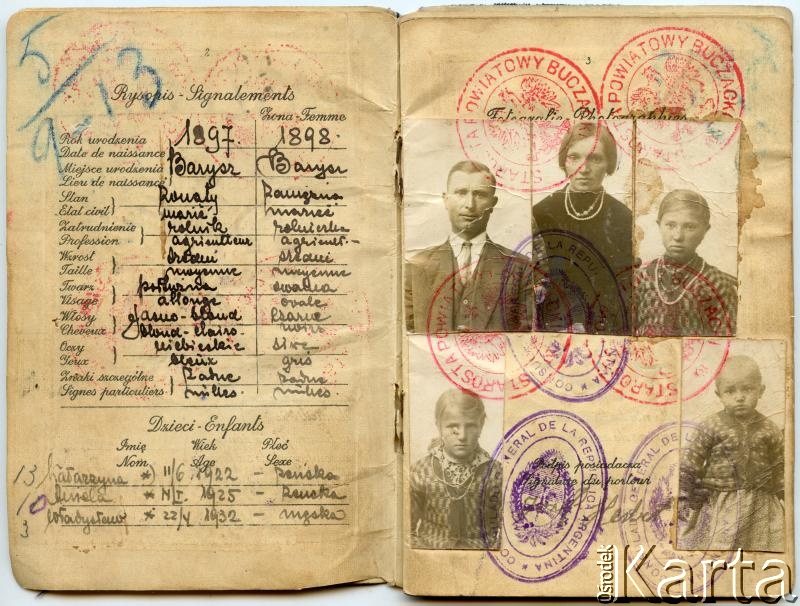 5
9-13
2
Rysopis - Signalements
Żona-Femme
Rok urodzenia 1897. 1898.
Date de naissance
Miejsce urodzenia Barysz Barysz
Lieu de naissance
Stan żonaty zamężna
Etat civil marié mariée
Zatrudnienie rolnik rolniczka
Profession agriculteur agricult-
Wzrost średni średni
Taille moyenne moyenne
Twarz owalna
Visage allongé ovale
Włosy jasno-blond czarne
Cheveux blond-clairs noirs
Oczy niebieskie siwe
Yeux bleux gris
Znaki szczególne żadne żadne
Signes particuliers nulles nulles
Dzieci - Enfants
Imię Wiek Płeć
Nom Age Sexe
13 Katarzyna * 11/6 1922 - żeńska
10 1925 - żeńska
3 Władysław * 22/V 1932 - męska
3
Fotografie Photographies
STAROSTA POWIATOWY BUCZACKI
STAROSTA POWIATOWY BUCZACKI
STAROSTA POWIATOWY
STAROSTA
DE LA REPUB
CONS
Podpis posiadacza
Signature du porteur
CONSUL GENERAL DE LA REPUBLICA ARGENTINA
GENERAL DE LA
Ośrodek
Karta
www.karta.org.pl